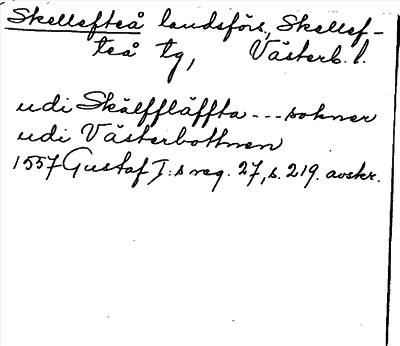 Skellefteå landsförs., Skellef-
teå tg, Västerb. l.
udi Skälffläffta --- soknar
udi Västerbottnen
1557 Gustaf I:s reg. 27, s. 219. avskr.